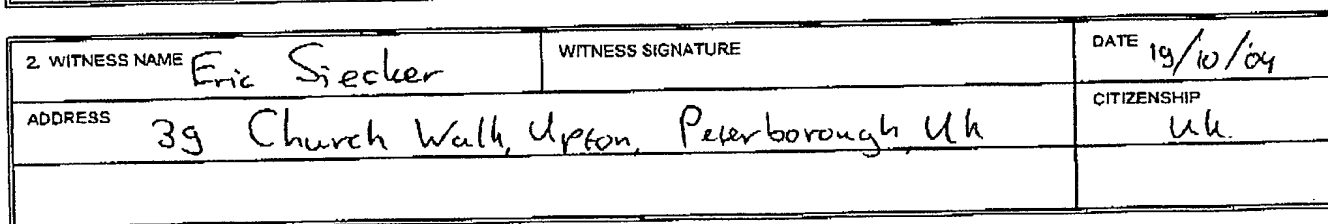 2. WITNESS NAME Eric Siecker WITNESS SIGNATURE DATE 19/10/04
ADDRESS 39 Church Walk, Upton, Peterborough, Uk CITIZENSHIP
U.k.